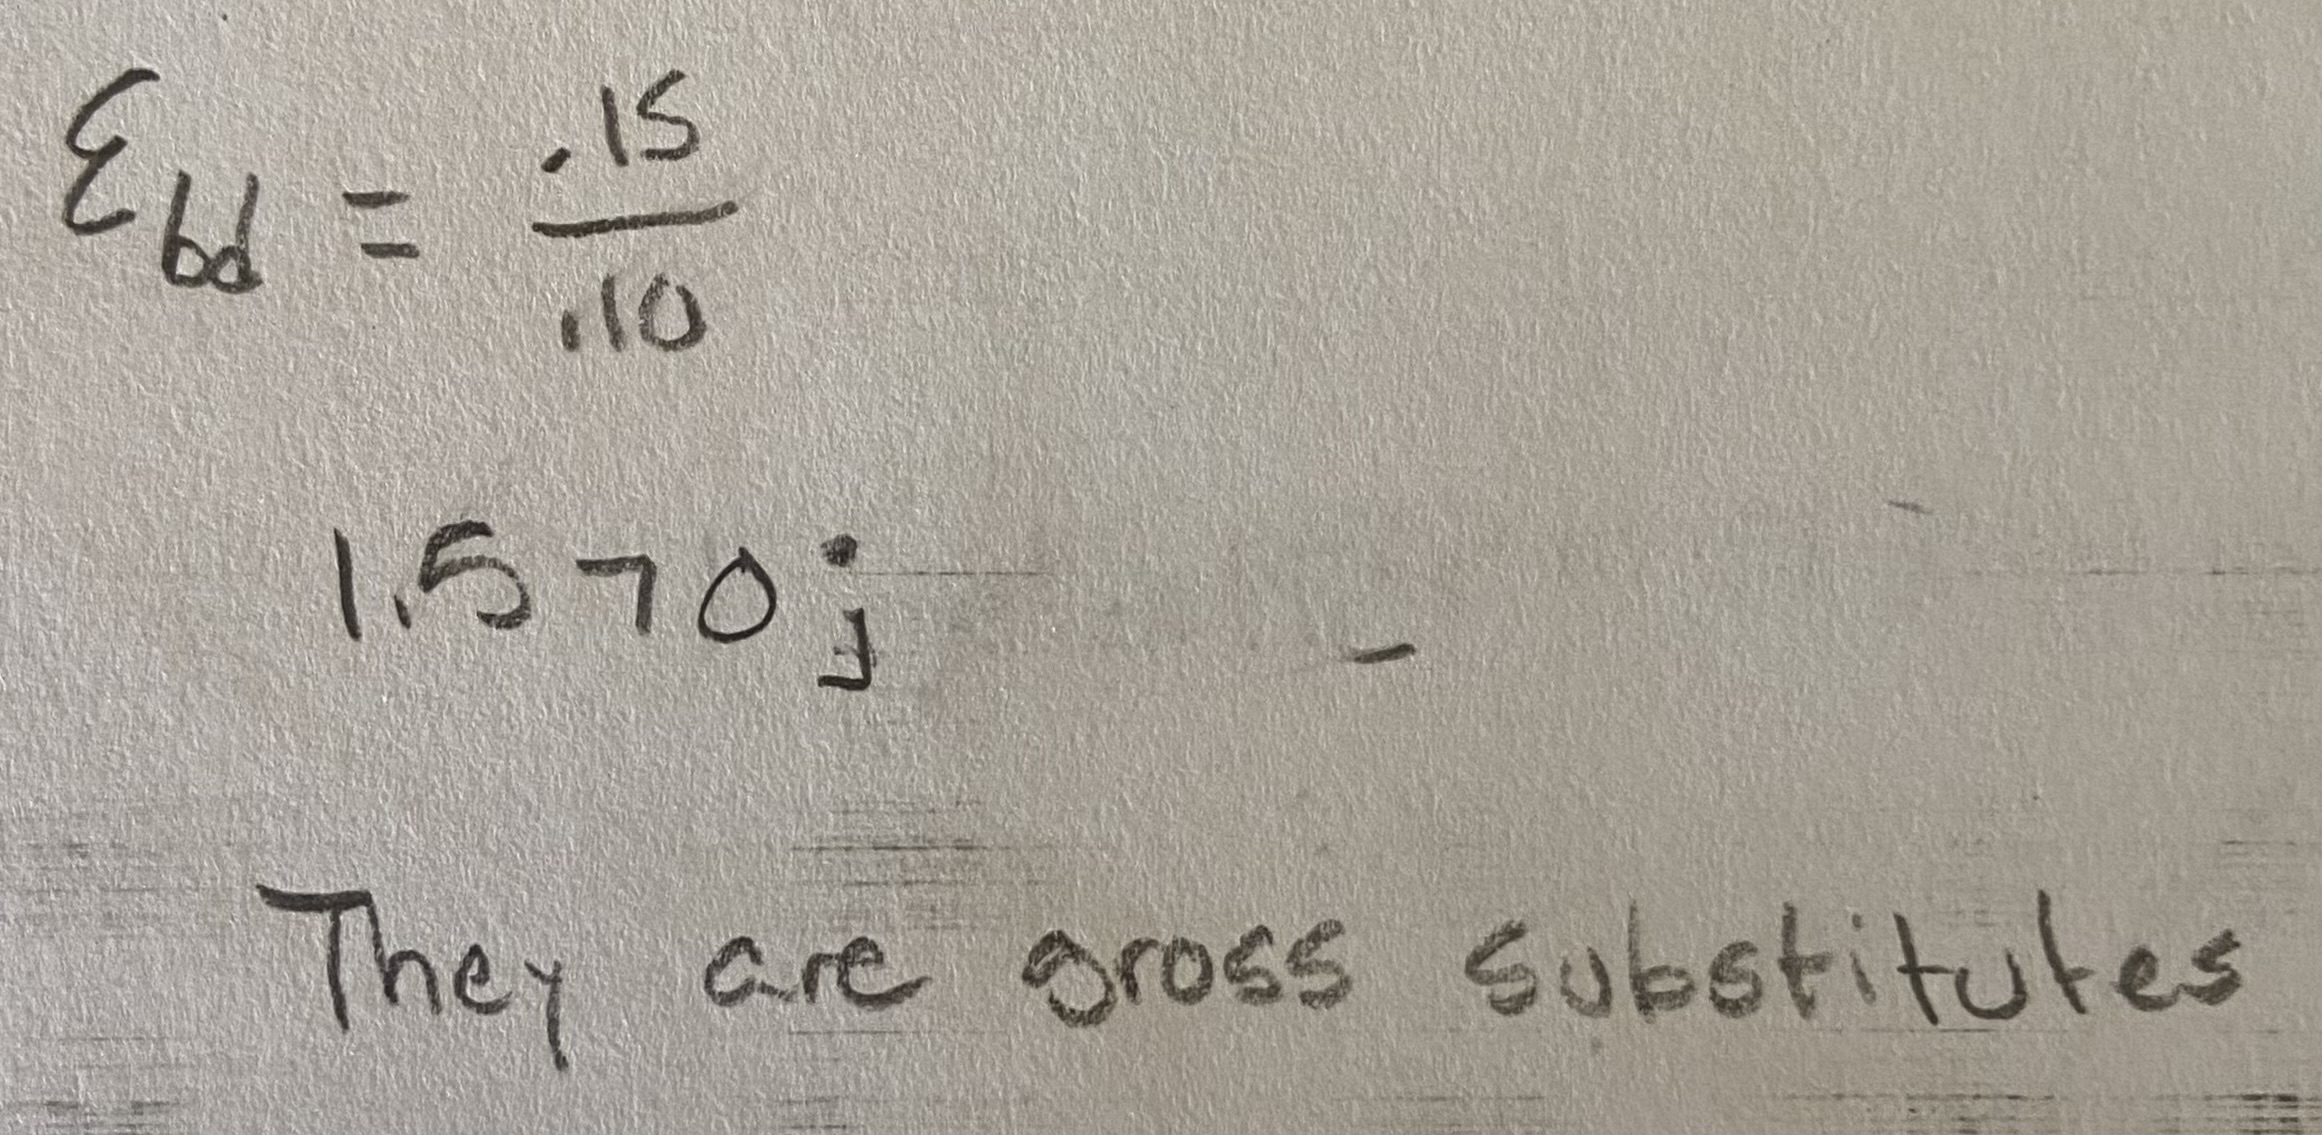 Ɛbd = .15
.10
1.5 > 0 ;
They are gross substitutes